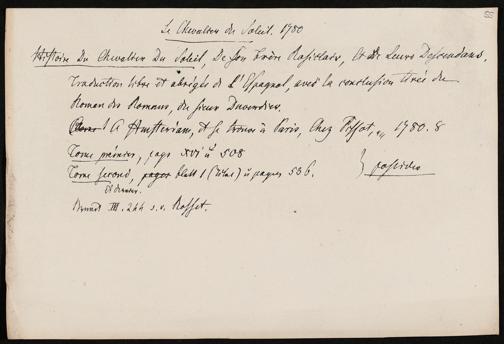 Le Chevalier du Soleil. 1780
Histoire Du Chevalier Du Soleil, De Son Frère Rosiclair, Et de Leurs Descendans,
Traduction libre et abrégée de L'Espagnol, avec la conclusion tirée du
Roman des Romans, du Sieur Duverdier.
A Amsterdam, et se trouve à Paris, Chez Pissot, 1780. 8
Tome prémier, pags XVI u 508
Tome second, blatt 1 (Titel) u pagines 556. } possideo
et dernier.
Brunet III. 244 s. v. Rosset.